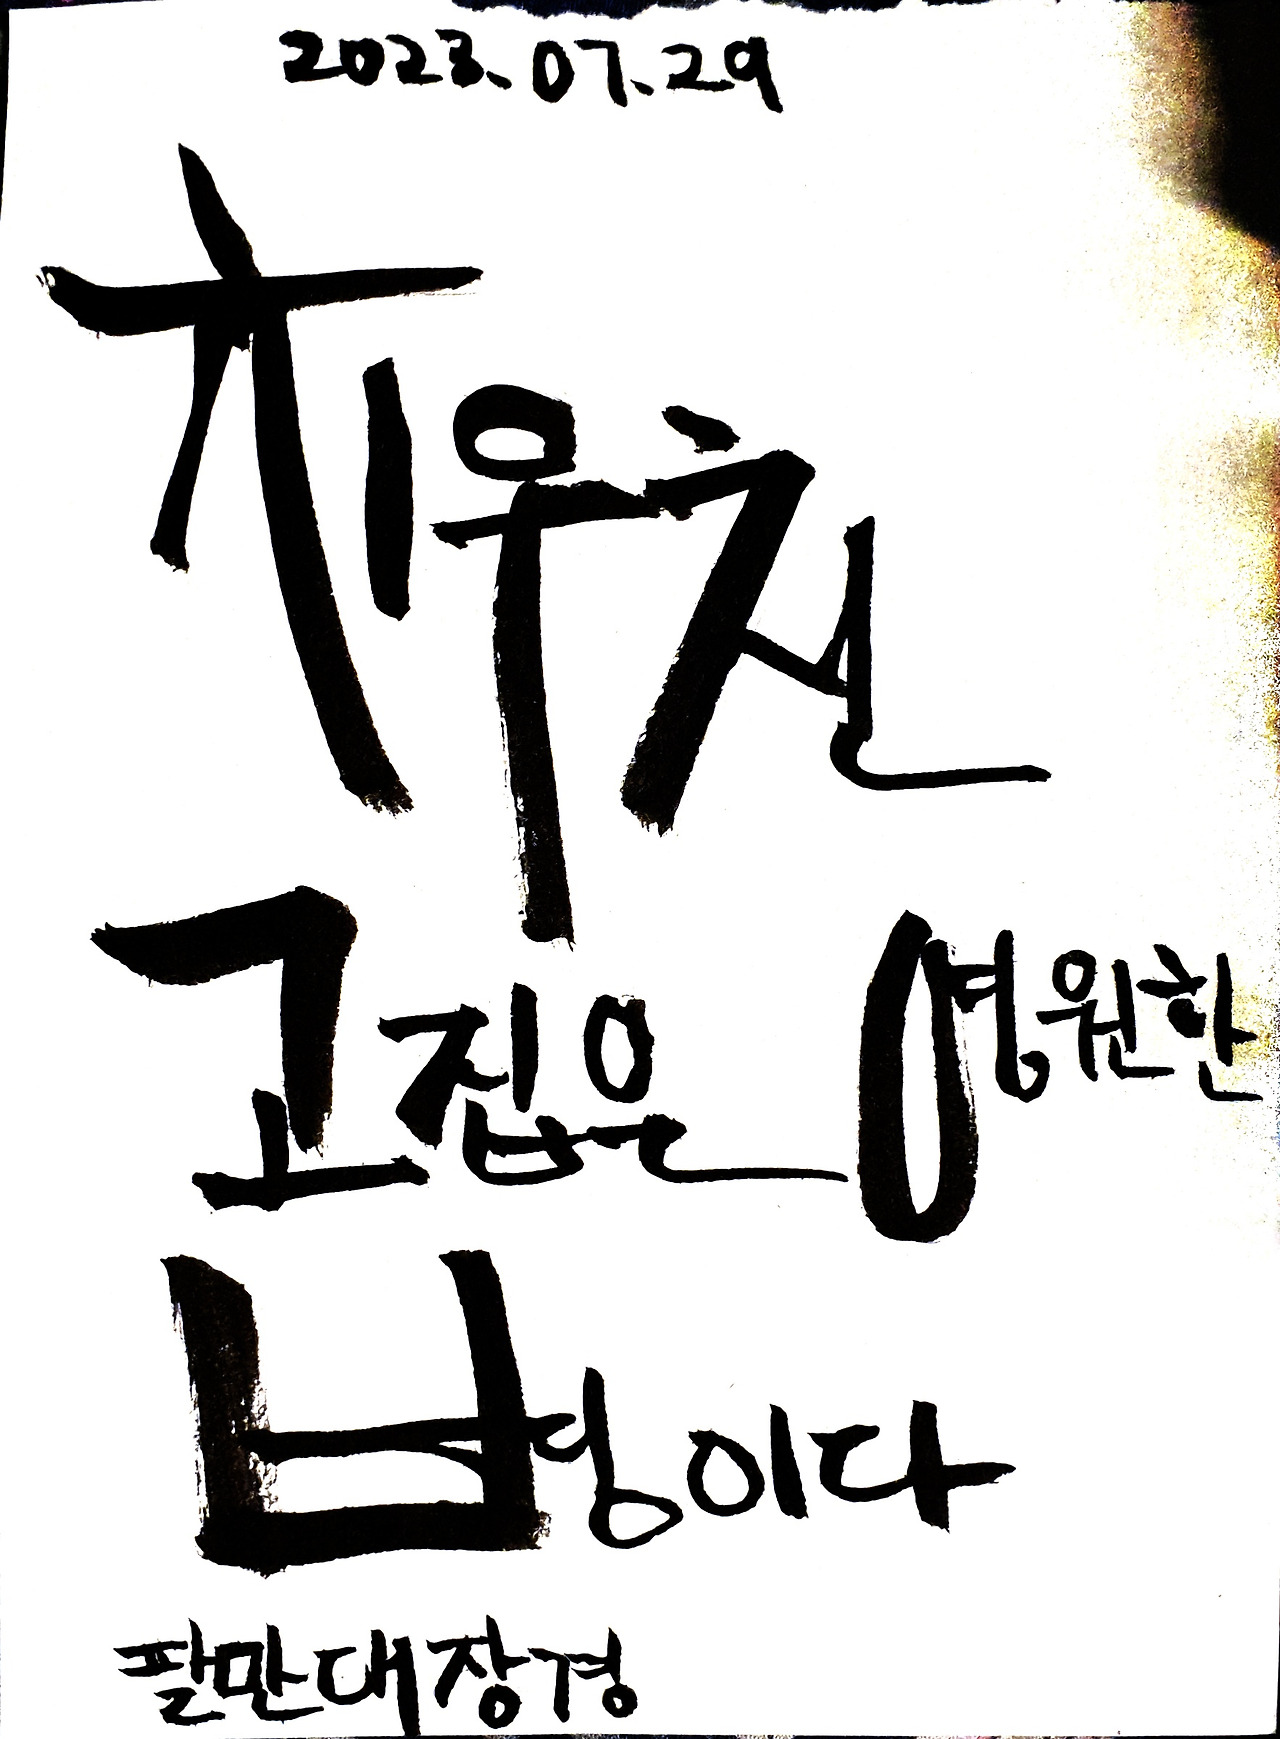 2023.07.29
치우친
고집은 영원한
병이다
팔만대장경